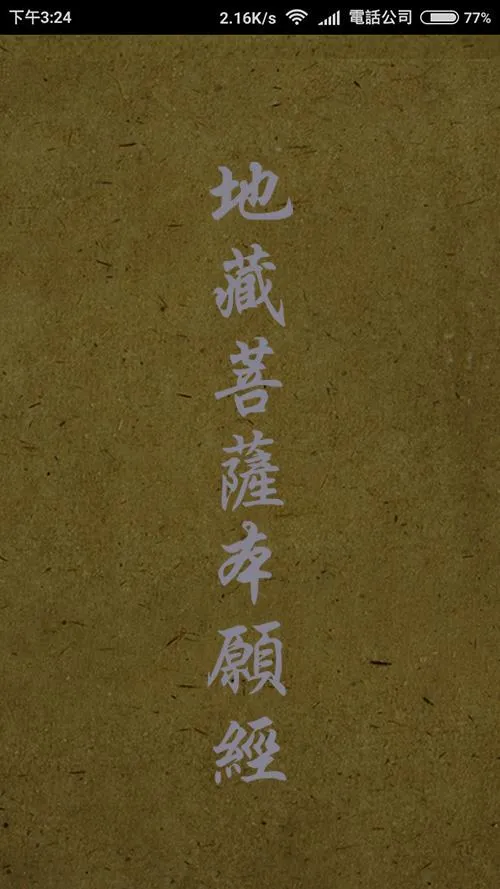 下午3:24
2.16K/s
電話公司
77%
地藏菩薩本願經